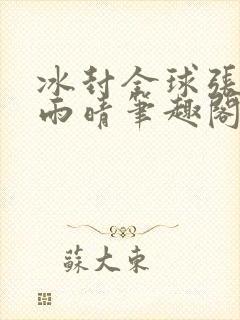 冰封全球張
雨晴筆趣閣
蘇大東